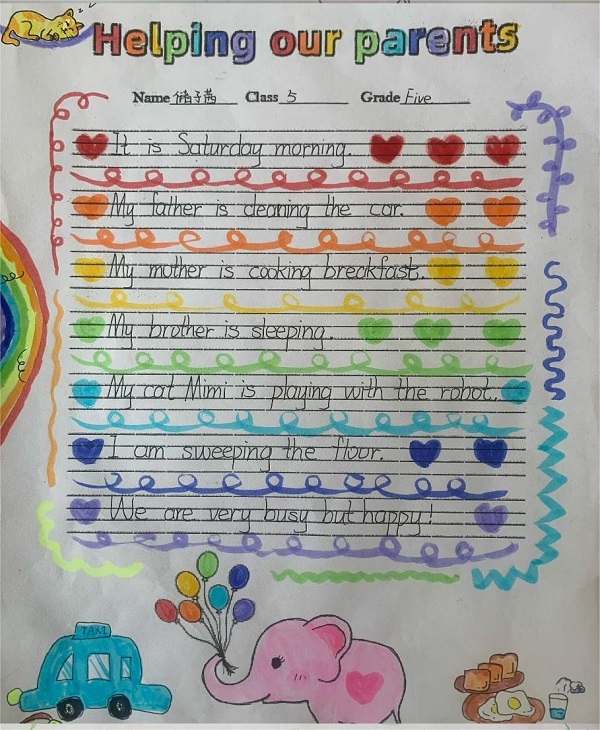 Helping our parents
Name Class 5 Grade Five
It is Saturday morning.
My father is cleaning the car.
My mother is cooking breakfast.
My brother is sleeping.
My cat Mimi is playing with the robot.
I am sweeping the floor.
We are very busy but happy!
TAXI